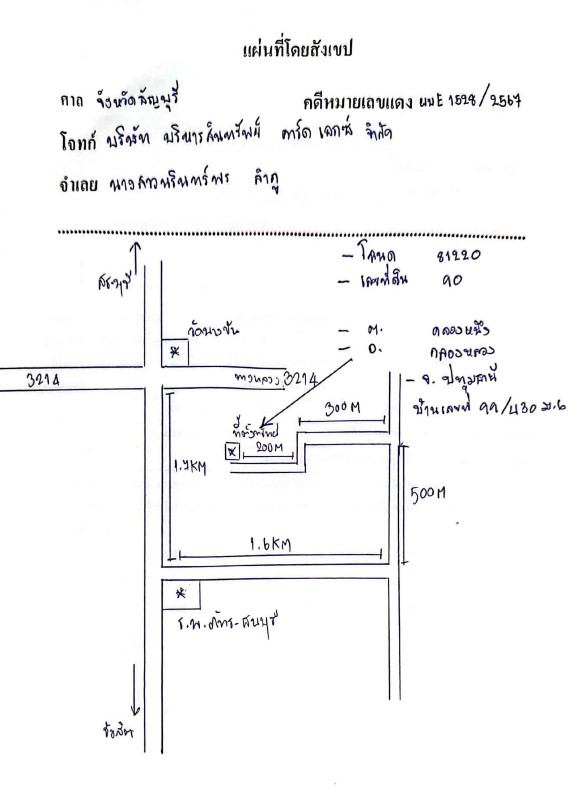 แผ่นที่โดยสังเขป
ศาล จังหวัดธัญบุรี คดีหมายเลขแดง ผบE 1528/2567
โจทก์ บริษัท บริหารสินทรัพย์ คาร์ด เอกซ์ จำกัด
จำเลย นางสาวนรินทร์พร ลำภู
สระบุรี
- โฉนด 81220
- เลขที่ดิน 90
วัดนาบุญ
- ต. คลองหนึ่ง
- อ. คลองหลวง
- จ. ปทุมธานี
บ้านเลขที่ 99/430 ม.6
3214
ทางหลวง 3214
300M
ที่ตั้งทรัพย์
200M
1.7KM
500M
1.6KM
ร.พ.ภัทร-ธนบุรี
รังสิต